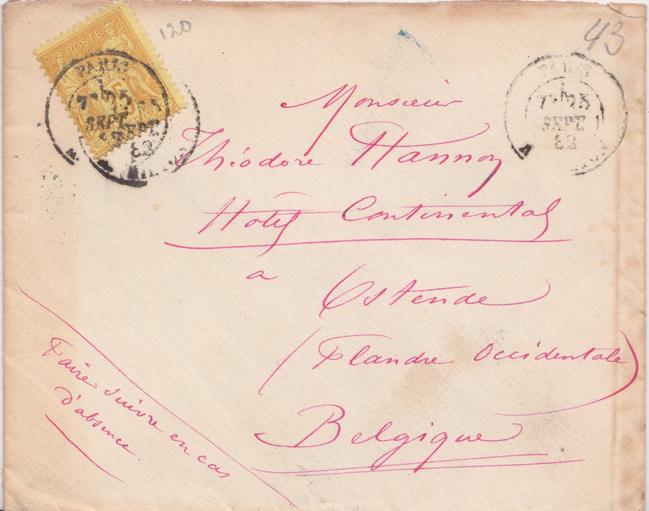 POSTE
120
43
PARIS
7E 25
SEPT
82
PARIS
7E 25
SEPT
82
Monsieur
Théodore Hannon
Hôtel Continental
a
Ostende
(Flandre Occidentale)
Belgique
Faire suivre en cas
d'absence.